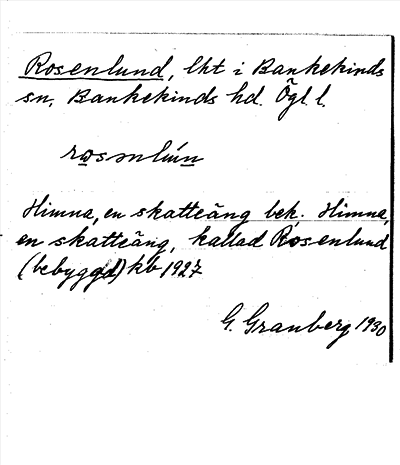 Rosenlund, lht i Bankekinds
sn, Bankekinds hd. Ögl. l.
rosənlún
Himna, en skatteäng bek. Himna,
en skatteäng, kallad Rosenlund
(bebyggd) kb 1927
G. Granberg 1930